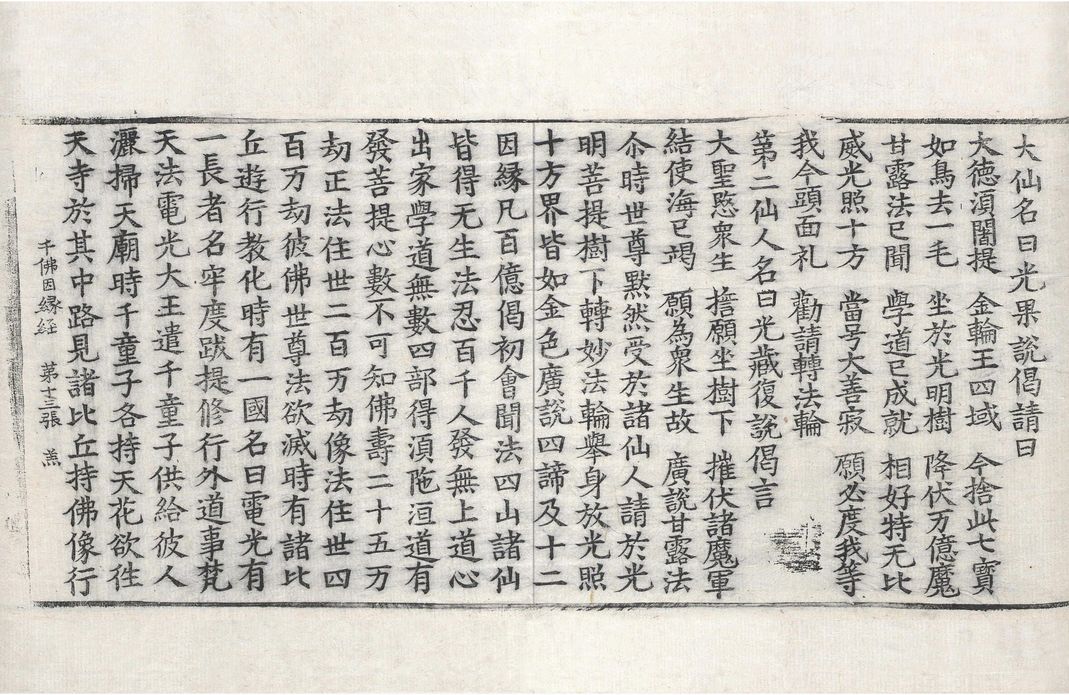 大仙名曰光果說偈請曰
大德湏闍提　金輪王四域　今捨此七寳
如鳥去一毛　坐於光明樹　降伏万億魔
甘露法已聞　學道已成就　相好特无比
威光照十方　當号大善寂　願必度我等
我今頭面礼　勸請轉法輪
第二仙人名曰光藏復說偈言
大聖愍衆生　擔願坐樹下　摧伏諸魔軍
結使海已竭　願為衆生故　廣說甘露法
尒時世尊黙然受於諸仙人請於光
明菩提樹下轉妙法輪舉身放光照
十方界皆如金色廣說四諦及十二
因緣凡百億偈初會聞法四山諸仙
皆得无生法忍百千人發無上道心
出家學道無數四部得湏陁洹道有
發菩提心數不可知佛壽二十五万
劫正法住世二百万劫像法住世四
百万劫彼佛世尊法欲滅時有諸比
丘遊行教化時有一國名曰電光有
一長者名牢度跋提修行外道事梵
天法電光大王遣千童子供給彼人
灑掃天廟時千童子各持天花欲徃
天寺於其中路見諸比丘持佛像行
千佛因緣経　第十三張　羔